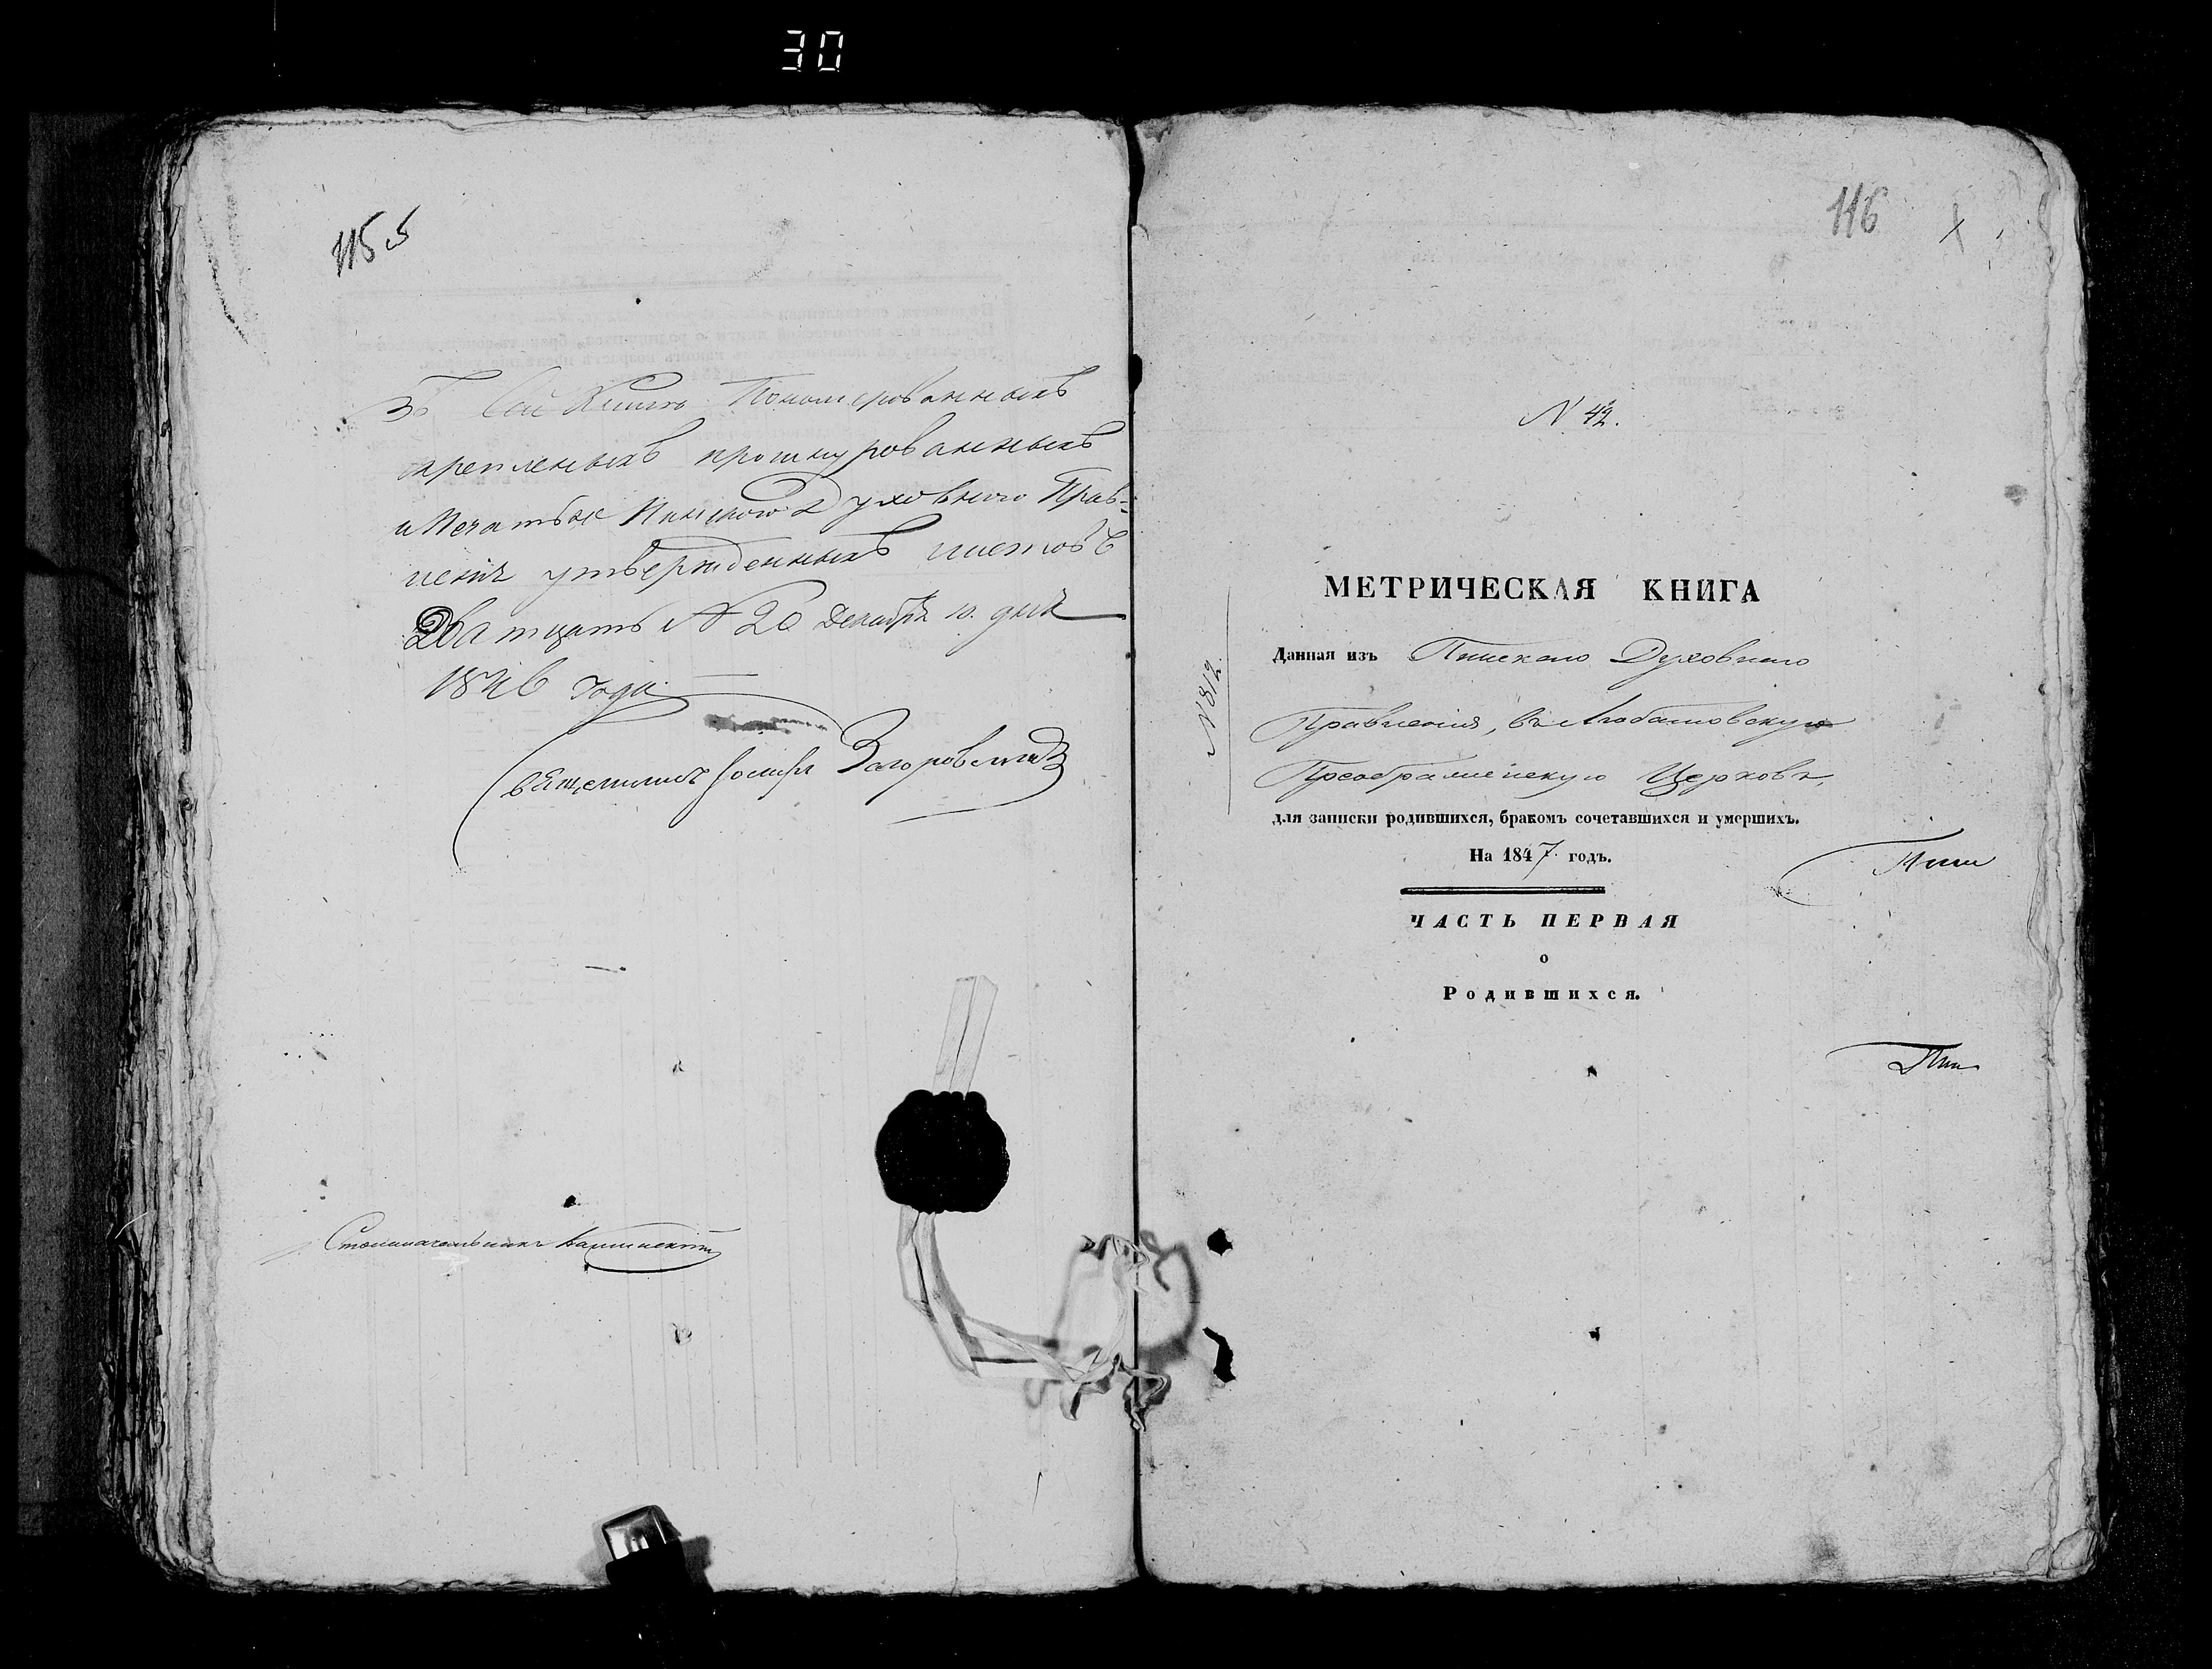 30
115 об
Въ Сей Книгѣ Пономерованныхъ
скрепленыхъ прошнурованныхъ
и Печатью Пинского Духовного Прав-
ленія утвержденныхъ листовъ
Дватцать № 20 Декабря 10. дня
1846 года
Священникъ Іосифъ Загоровскій
Столоначальникъ
116
N 42.
N 812.
МЕТРИЧЕСКАЯ КНИГА
Данная изъ Пинскаго Духовнаго
Правленія, въ Любашовскую
Преображенскую Церковь,
для записки родившихся, бракомъ сочетавшихся и умершихъ.
На 1847 годъ.
ЧАСТЬ ПЕРВАЯ
о
Родившихся.